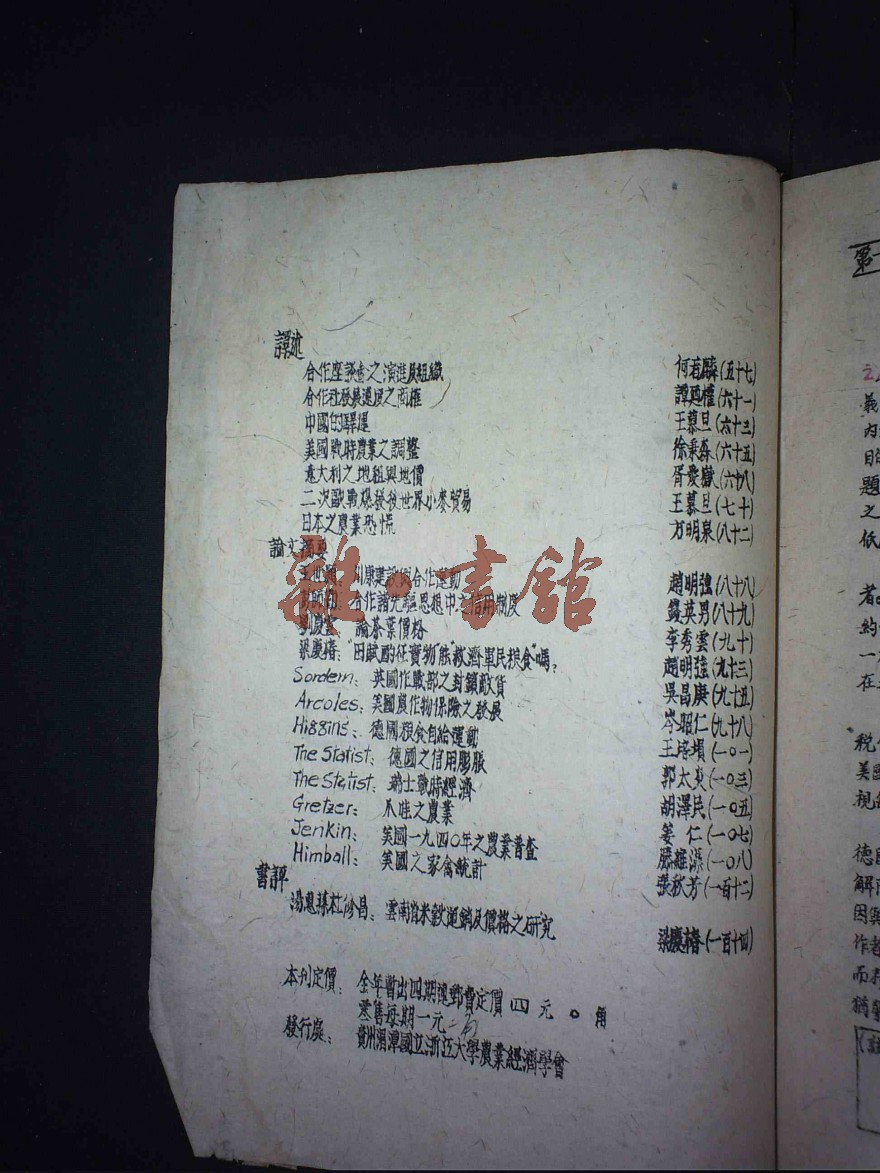 譯述
合作座談會之演進及組織 何若麟(五十七)
合作社發興運展之商榷 譚迺權(六十一)
中國的驛運 王慕旦(六十三)
美國戰時農業之調整 徐秉森(六十五)
意大利之地租與地價 胥愛嶽(六十八)
二次歐戰爆發後世界小麥貿易 王慕旦(七十)
日本之農業恐慌 方明泉(八十二)
論文摘要
王世穎: 康建設與合作運動 趙明強(八十八)
合作諸先驅思想中之信用制度 錢英男(八十九)
劉慶 論茶葉價格 李秀雲(九十)
梁慶椿: "田賦酌征實物能"救濟軍民粮食"嗎? 趙明強(九十三)
Sordern: 英國作戰部之封鎖敵貨 吳昌庚(九十五)
Arcoles: 美國農作物保險之發展 岑昭仁(九十八)
Higgins: 德國粮食自給運動 王培塤(一〇一)
The Statist: 德國之信用膨脹 郭太炎(一〇三)
The Statist: 瑞士戰時經濟 胡澤民(一〇五)
Gretzer: 爪哇之農業 姜仁(一〇七)
Jenkin: 美國一九四〇年之農業普查 羅 (一〇八)
Himball: 美國之家禽統計 張秋芳(一百十二)
書評
湯惠蓀杜修昌: 雲南省米穀運銷及價格之研究 梁慶椿(一百十四)
本刊定價: 全年暫出四期連郵費定價四元〇角
零售每期一元二角
發行處: 貴州湄潭國立浙江大學農業經濟學會
雜·書館
第
義
內
目
題
之
低
者
約
一
在
稅
美國
視
德國
解
因與
作者
而
猶